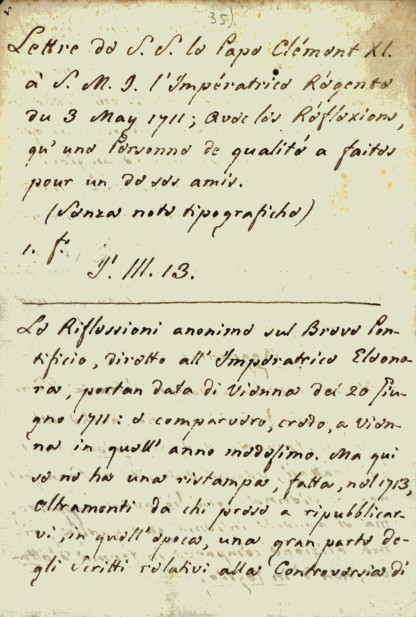 35)
Lettre de S. S. le Pape Clémént XI.
à S. M. I. l'Impératrice Régente
du 3 May 1711; avec les Réflexions,
qu'une Personne de qualité a faites
pour un de ses amis.
(Senza note tipografiche)
1. f.º
I. III. 13.
Le Riflessioni anonime sul Breve Pon-
tificio, diretto all'Imperatrice Eleono-
ra, portan data di Vienna dei 20 Giu-
gno 1711: e comparvero, credo, a Vien-
na in quell'anno medesimo. Ma qui
se ne ha una ristampa, fatta, nel 1713,
altramenti da chi prese a ripubblicar-
vi, in quell'epoca, una gran parte de-
gli Scritti relativi alla Controversia di